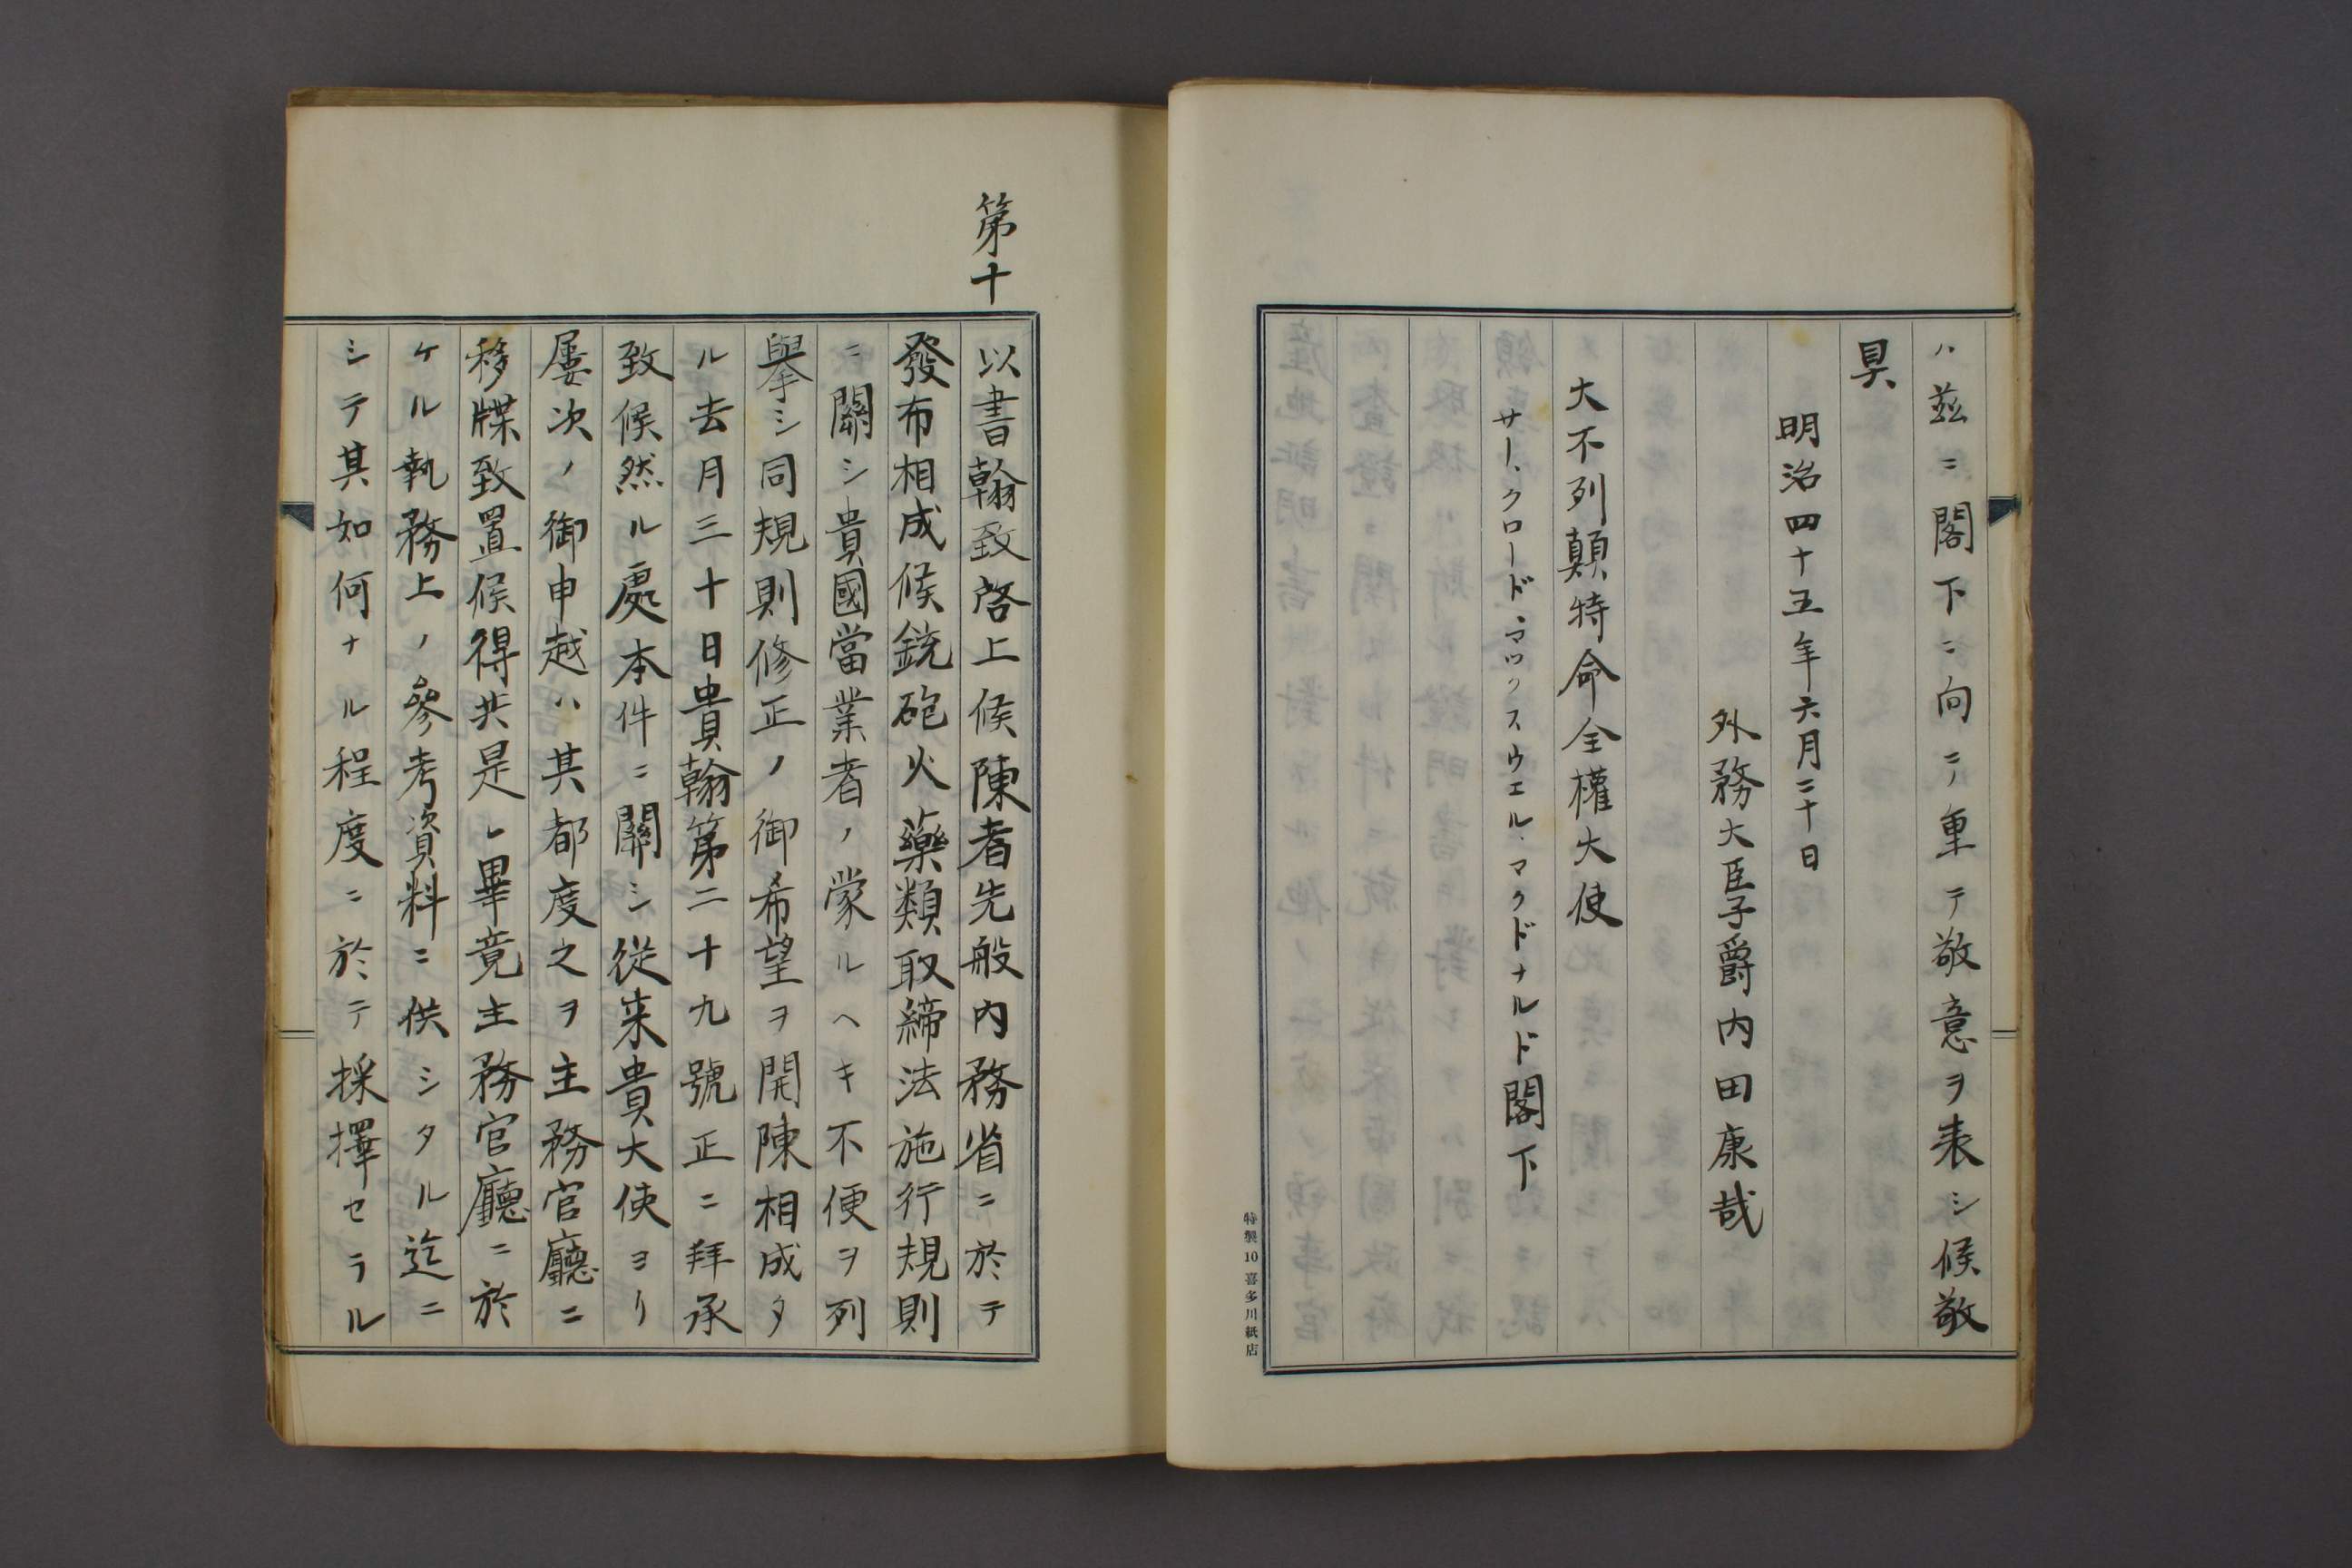 ハ茲ニ閣下ニ向テ重テ敬意ヲ表シ候敬
具
明治四十五年六月二十日
外務大臣子爵内田康哉
大不列顛特命全權大使
サー、クロード、マックスウエル、マクドナルド閣下
特製10喜多川紙店
第十
以書翰致啓上候陳者先般内務省ニ於テ
發布相成候銃砲火藥類取締法施行規則
ニ關シ貴國當業者ノ蒙ルヘキ不便ヲ列
擧シ同規則修正ノ御希望ヲ開陳相成タ
ル去月三十日貴翰第二十九號正ニ拜承
致候然ル處本件ニ關シ從来貴大使ヨリ
屢次ノ御申越ハ其都度之ヲ主務官廳ニ
移牒致置候得共是レ畢竟主務官廳ニ於
ケル執務上ノ參考資料ニ供シタル迄ニ
シテ其如何ナル程度ニ於テ採擇セラル